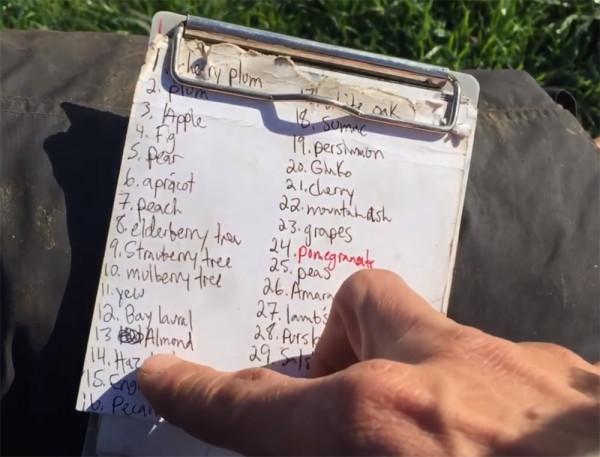 cherry plum
2. plum
3. Apple
4. Fig
5. pear
6. apricot
7. peach
8. elderberry tree
9. Strawberry tree
10. mulberry tree
11. yew
12. Bay laural
13 Almond
14. Haz
15. Eng
16. Pecan
17. white oak
18. Sumac
19. persimmon
20. Ginko
21. cherry
22. mountain ash
23. grapes
24. pomegranate
25. peas
26. Amara
27. lamb's
28. Pursl
29. Sals